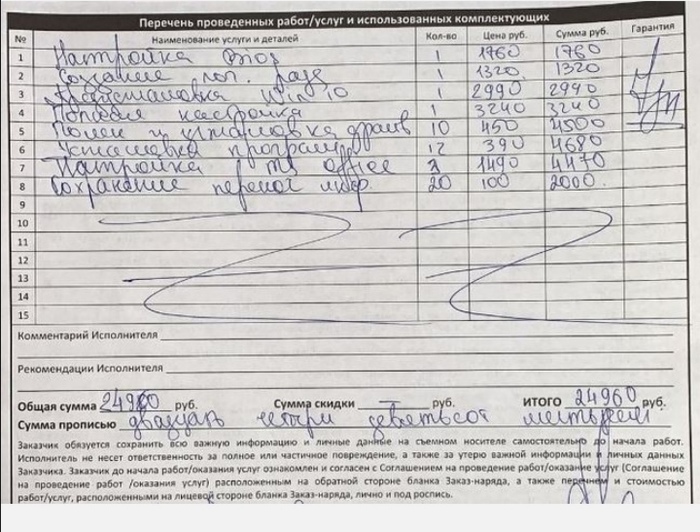 Перечень проведенных работ/услуг и использованных комплектующих
№ Наименование услуги и деталей Кол-во Цена руб. Сумма руб. Гарантия
1 Настройка Bios 1 1760 1760
2 Создание лог. разд 1 1320 1320
3 Предустановка Win 10 1 2990 2990
4 Половая настройка 1 3240 3240
5 Поиск и установка драйв 10 450 4500
6 Установка программ 12 390 4680
7 Настройка ms office 3 1490 4470
8 Сохранение перенос инф. 20 100 2000
9
10
11
12
13
14
15
Комментарий Исполнителя
Рекомендации Исполнителя
Общая сумма 24960 руб. Сумма скидки — руб. ИТОГО 24960 руб.
Сумма прописью двадцать четыре девятьсот шестьдесят
Заказчик обязуется сохранить всю важную информацию и личные данные на съемном носителе самостоятельно до начала работ.
Исполнитель не несет ответственность за полное или частичное повреждение, а также за утерю важной информации и личных данных
Заказчика. Заказчик до начала работ/оказания услуг ознакомлен и согласен с Соглашением на проведение работ/оказание услуг (Соглашение
на проведение работ /оказания услуг) расположенным на обратной стороне бланка Заказ-наряда, а также перечнем и стоимостью
работ/услуг, расположенными на лицевой стороне бланка Заказ-наряда, лично и под роспись.